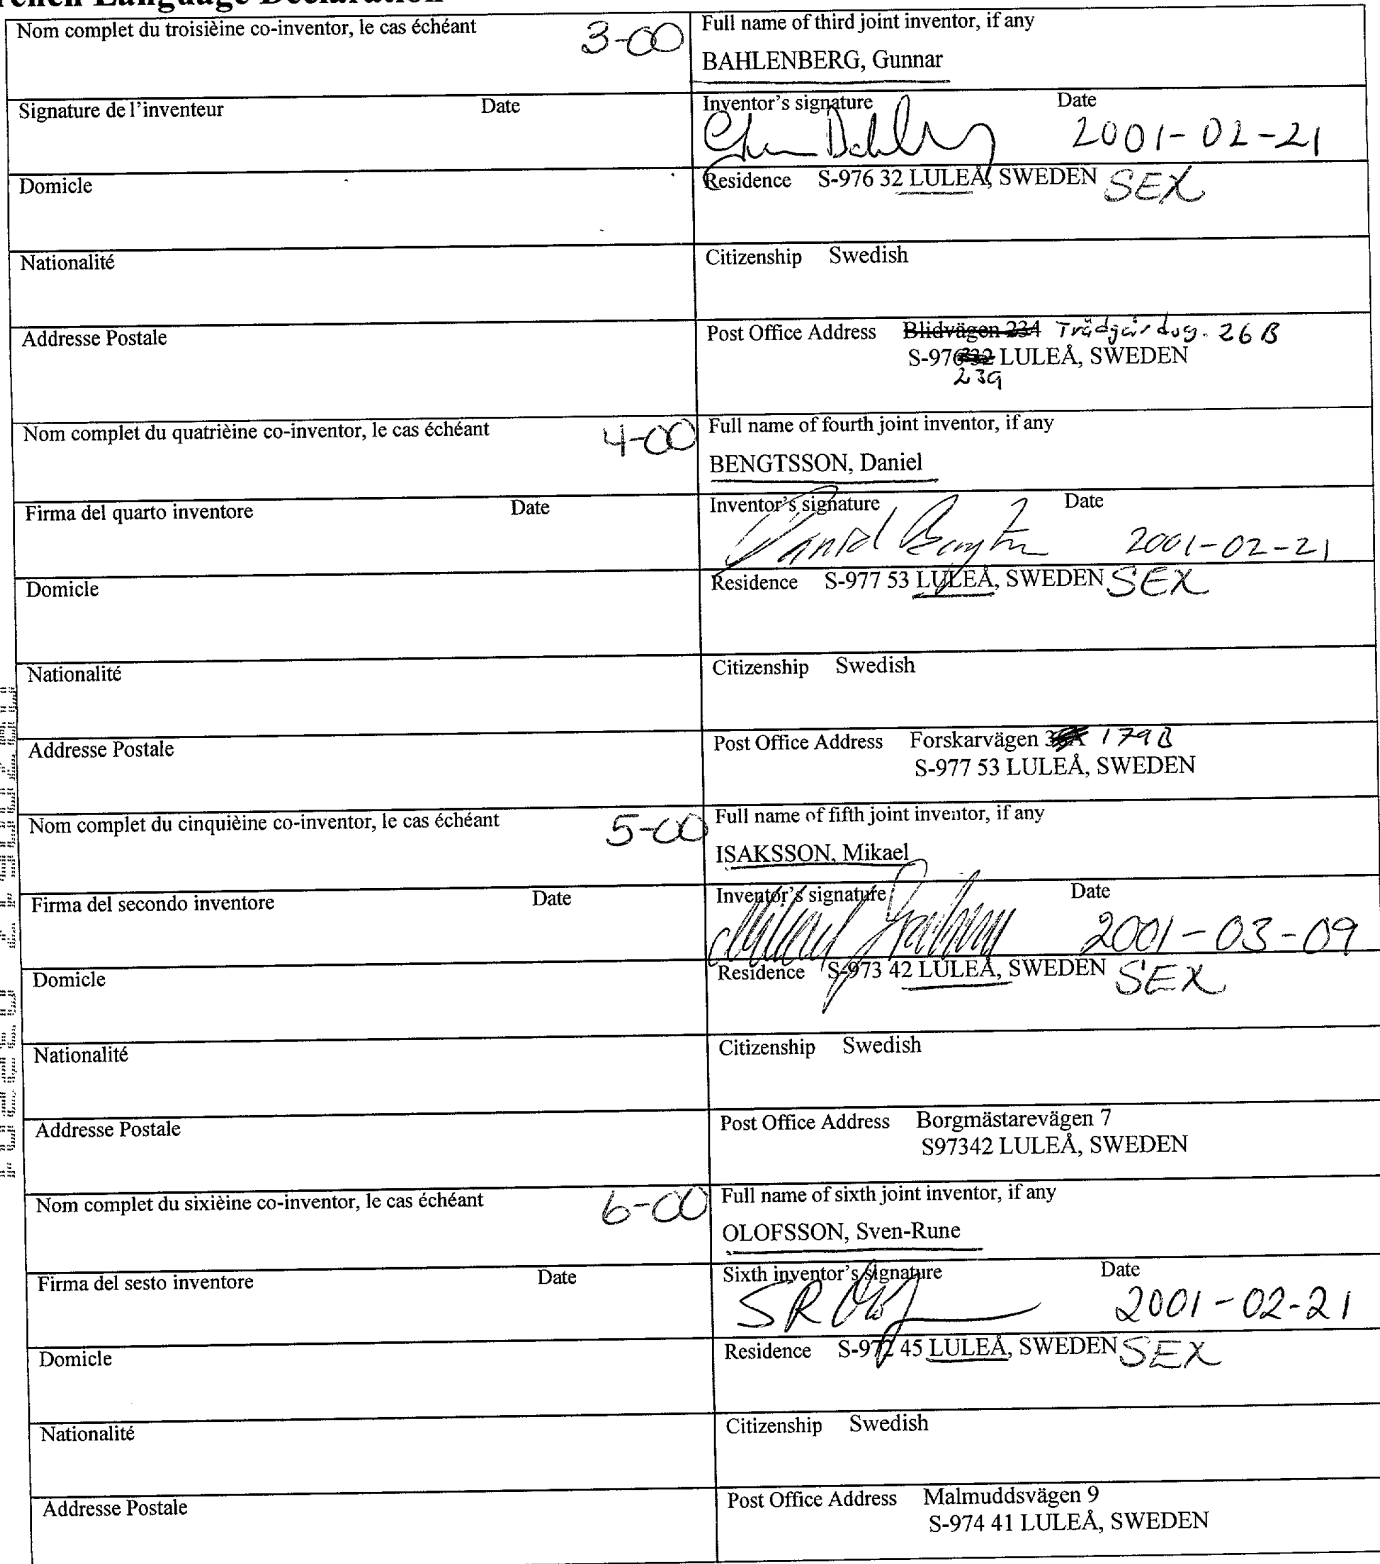 French Language Declaration
Nom complet du troisièine co-inventor, le cas échéant 3-00
Full name of third joint inventor, if any
BAHLENBERG, Gunnar
Signature de l'inventeur Date
Inventor's signature Date
2001-02-21
Domicle
Residence S-976 32 LULEÅ, SWEDEN SEX
Nationalité
Citizenship Swedish
Addresse Postale
Post Office Address Blidvägen 234 Trädgårdsg. 26 B
S-976 32 LULEÅ, SWEDEN
239
Nom complet du quatrièine co-inventor, le cas échéant 4-00
Full name of fourth joint inventor, if any
BENGTSSON, Daniel
Firma del quarto inventore Date
Inventor's signature Date
Daniel Bengtsson 2001-02-21
Domicle
Residence S-977 53 LULEÅ, SWEDEN SEX
Nationalité
Citizenship Swedish
Addresse Postale
Post Office Address Forskarvägen 179B
S-977 53 LULEÅ, SWEDEN
Nom complet du cinquièine co-inventor, le cas échéant 5-00
Full name of fifth joint inventor, if any
ISAKSSON, Mikael
Firma del secondo inventore Date
Inventor's signature Date
2001-03-09
Domicle
Residence S-973 42 LULEÅ, SWEDEN SEX
Nationalité
Citizenship Swedish
Addresse Postale
Post Office Address Borgmästarevägen 7
S97342 LULEÅ, SWEDEN
Nom complet du sixièine co-inventor, le cas échéant 6-00
Full name of sixth joint inventor, if any
OLOFSSON, Sven-Rune
Firma del sesto inventore Date
Sixth inventor's signature Date
2001-02-21
Domicle
Residence S-972 45 LULEÅ, SWEDEN SEX
Nationalité
Citizenship Swedish
Addresse Postale
Post Office Address Malmuddsvägen 9
S-974 41 LULEÅ, SWEDEN